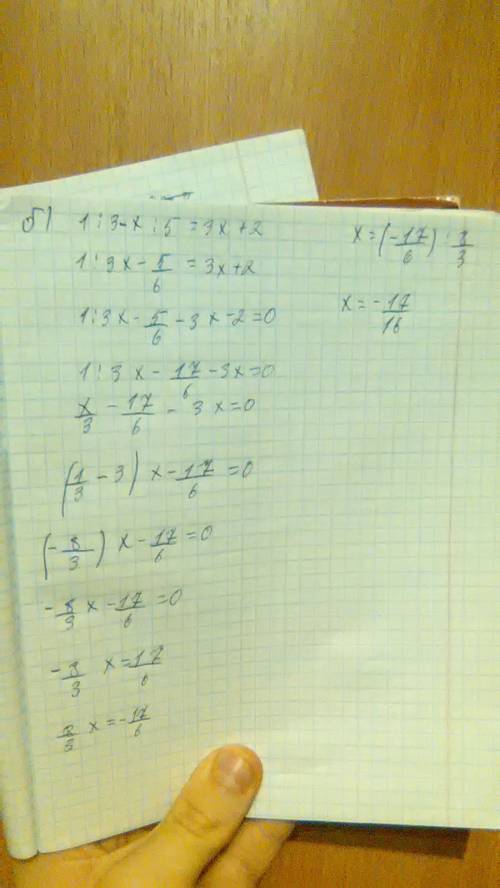 б) 1:3-x:5=3x+2
1:3x-5/6=3x+2
1:3x-5/6-3x-2=0
1:3x-17/6-3x=0
x/3-17/6-3x=0
(1/3-3)x-17/6=0
(-8/3)x-17/6=0
-8/3x-17/6=0
-8/3x=17/6
8/3x=-17/6
x=(-17/6):8/3
x=-17/16